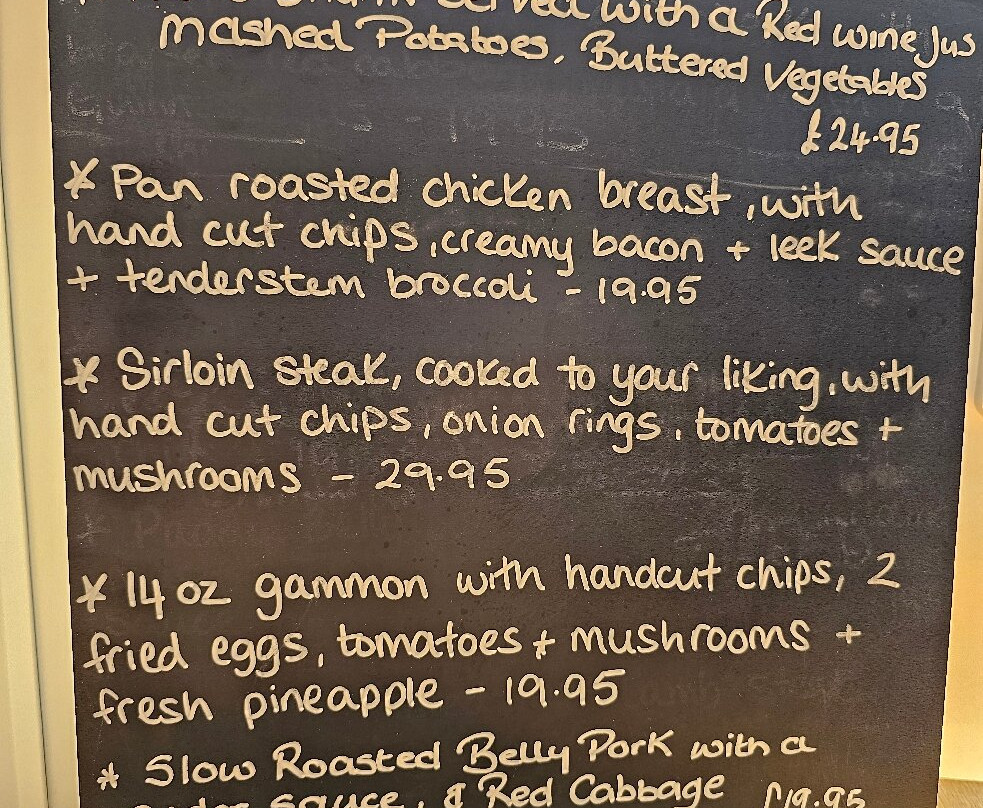 served with a Red wine Jus
mashed Potatoes, Buttered Vegetables
£24.95
* Pan roasted chicken breast, with
hand cut chips, creamy bacon + leek sauce
+ tenderstem broccoli - 19.95
* Sirloin steak, cooked to your liking, with
hand cut chips, onion rings, tomatoes +
mushrooms - 29.95
* 14 oz gammon with handcut chips, 2
fried eggs, tomatoes + mushrooms +
fresh pineapple - 19.95
* Slow Roasted Belly Pork with a
Sauce, & Red Cabbage £19.95